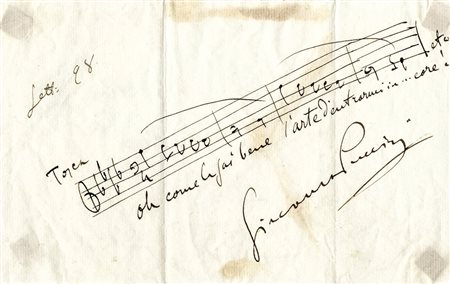 Sett: 98.
Tosca
oh come la sai bene l'arte d'entrarmi in... core! etc
Giacomo Puccini